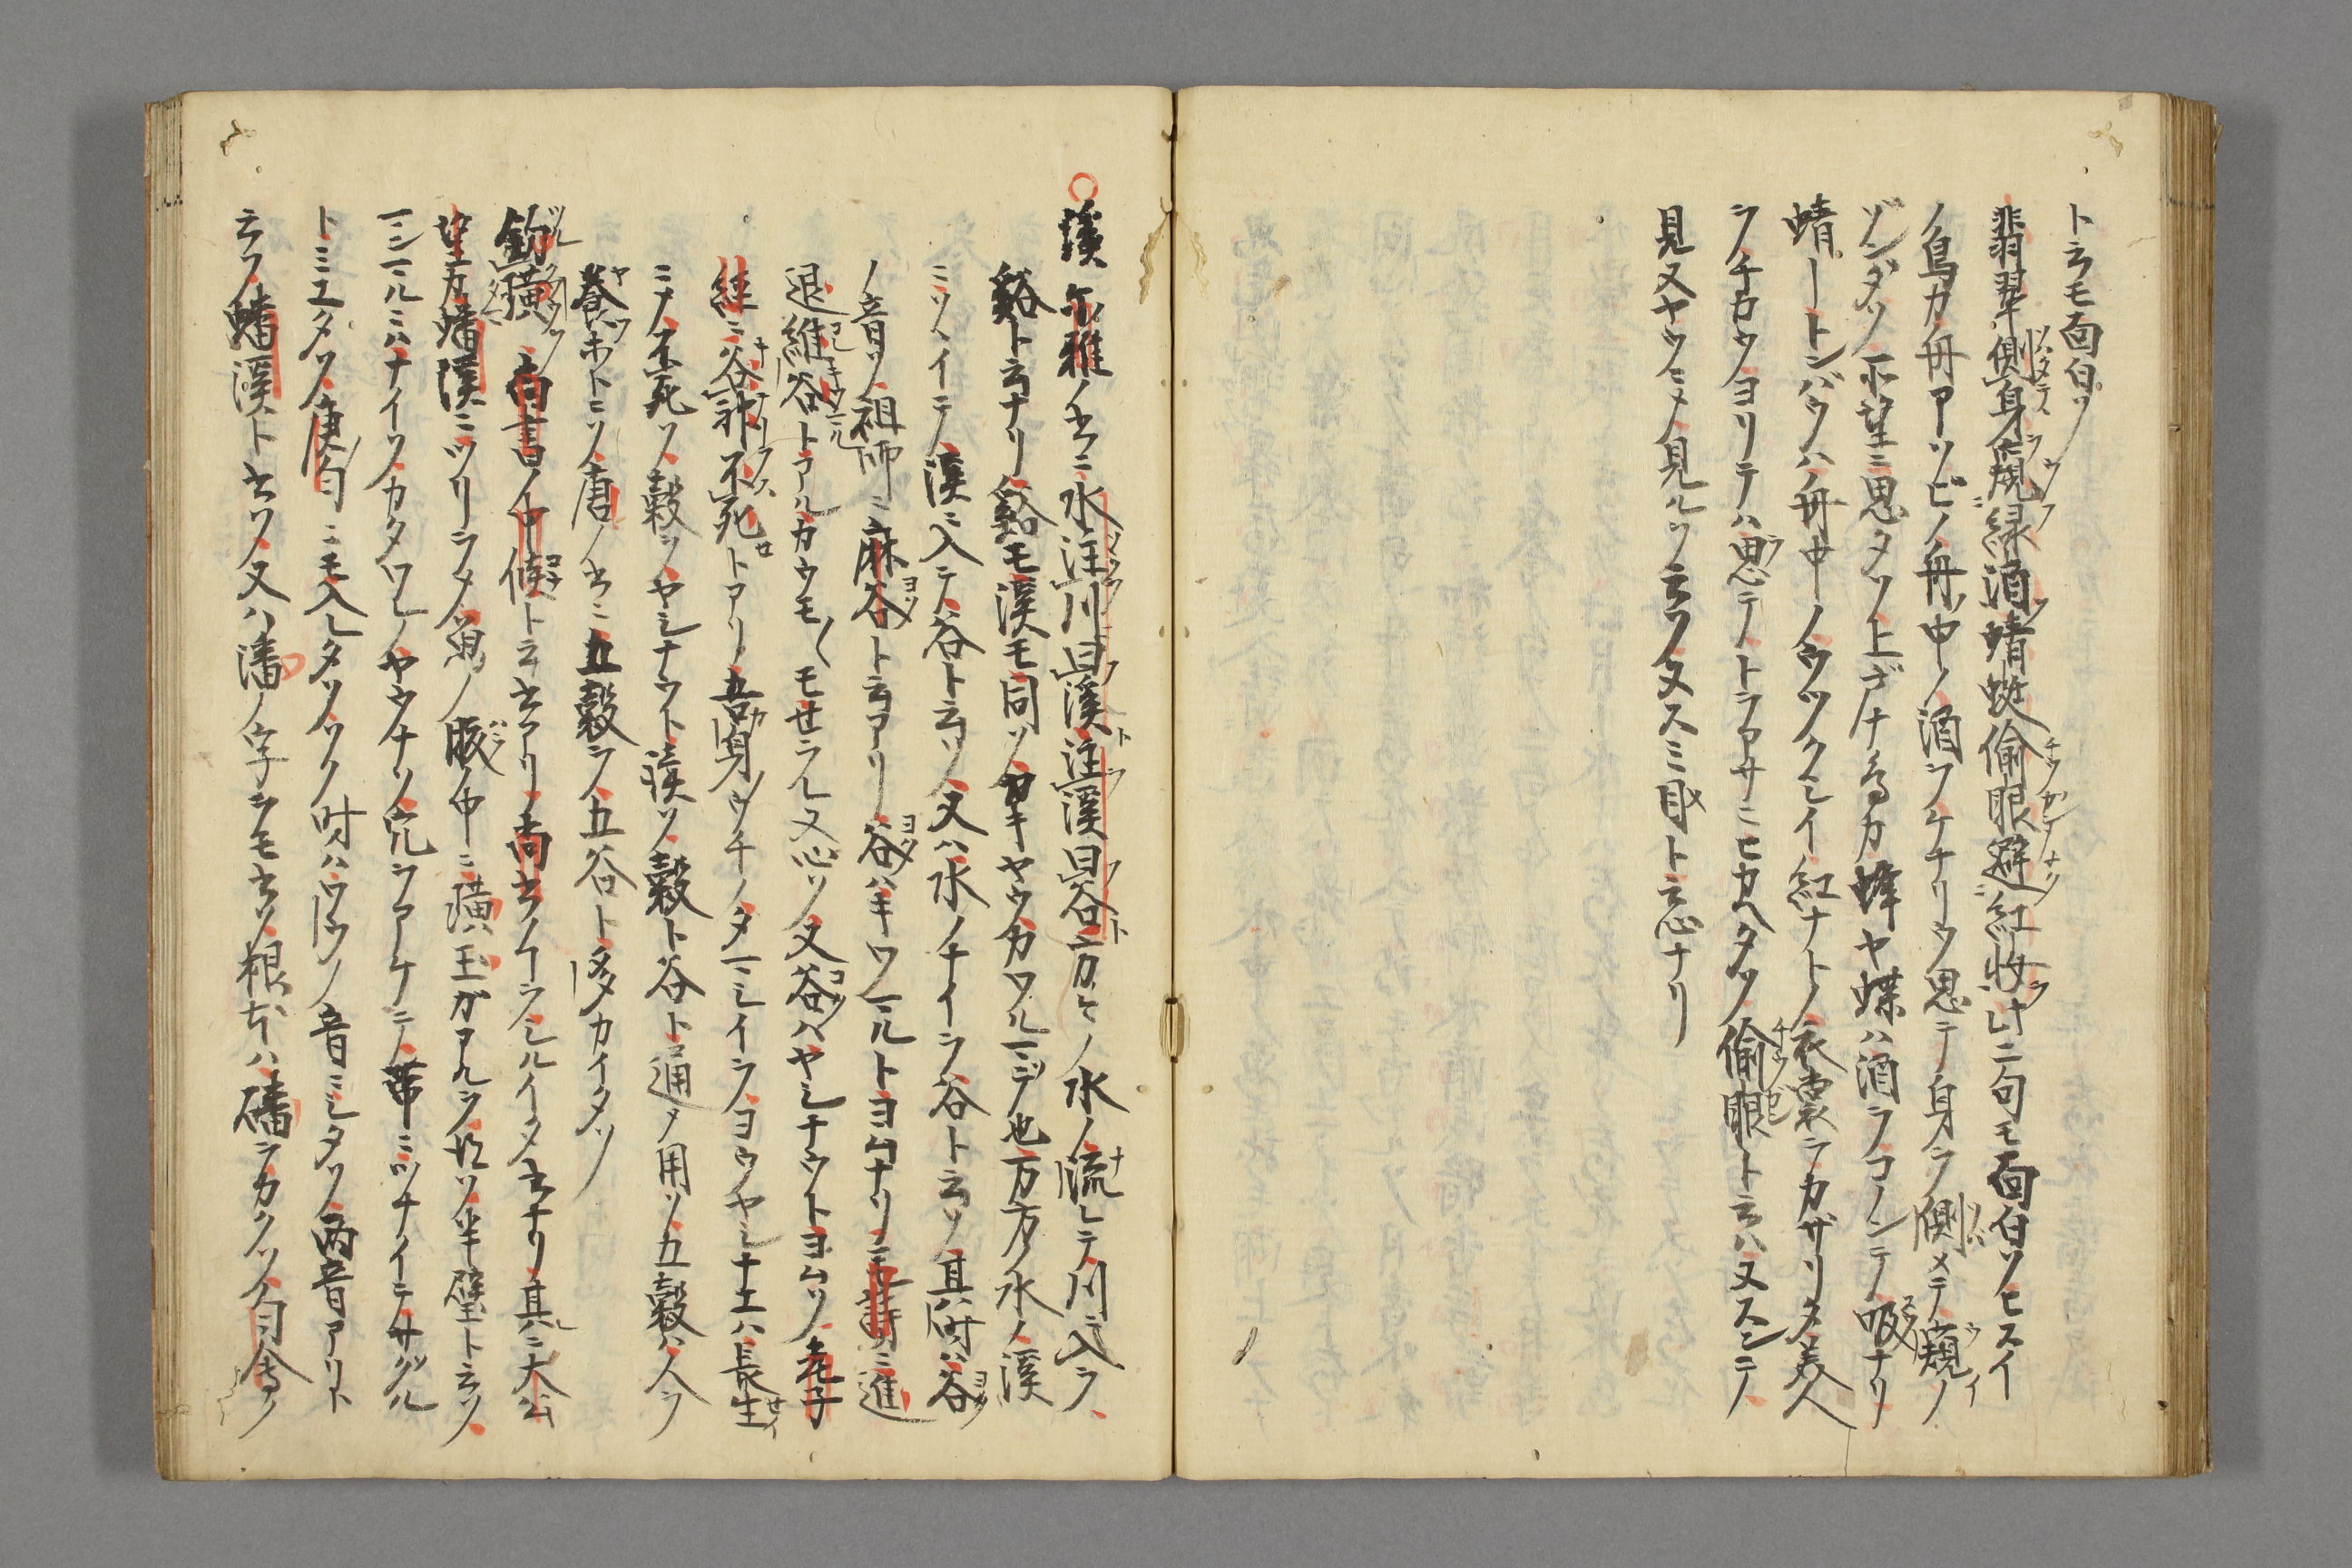 ト云モ面白ソ
翡翠側身窺緑酒蜻蜓偸眼避紅妝此二句モ面白ソヒスイ
ノ鳥カ舟アソビノ舟中ノ酒ヲケナリウ思テ身ヲ側メテ窺ノ
ゾンダソ所望ニ思タソ上ゴナ鳥カ蜂ヤ蝶ハ酒ヲコノンテ吸ナリ
蜻ートンバウハ舟中ノウツクシイ紅ナトノ衣裳ヲカザリタ美人
ヲチカウヨリテハ思テトラアサニヒカヘタソ偸眼ト云ハヌスンテ
見又ヤウニメ見ルソ云フヌスミ目ト云心ナリ
○溪 尓雅ノ云ニ水注川曰溪注溪曰谷云カ々ノ水ノ流レテ川ニ入ヲ
谿ト云ナリ谿モ溪モ同ソカキヤウカワルマデ也万方ノ水ノ溪
ミソヘイテ溪ニ入テ谷ト云ソ又ハ水ノチイヲ谷ト云ソ其時ハ谷
ノ音ソ祖師ニ麻谷ト云アリ谷ハキワマルトヨムナリ毛詩ニ進
退維谷トアルカウモ〱モせラレ又心ソ又谷ハヤシナウトヨムソ老子
経ニ谷神不死トアリ吾身ウチノタマシイヲヨウヤシナエハ長生
ニメ不死ソ穀ソヤシナウト漢ソ穀ト谷ト通メ用ソ五穀ハ人ヲ
養ホトニソ唐ノ云ニ五穀ヲ五谷ト多カイタソ
釣璜 尚書ノ中候ト云云アリ尚云ノケヲシルイタ云ナリ其ニ太公
望カ磻溪ニツリヲメ魚ノ腹ノ中ニ璜玉ガアルヲ壮ソ半璧ト云ソ
マンマルニハナイソカタワレノヤウナソ穴ヲアケテ帯ニツナイテサグル
トミエタソ庚匀ニモ入レタソツク時ハウウノ音ニシタソ両音アリト
云フ蟠溪ト云ソ又ハ潘ノ字ヲモ云ソ根本ハ磻ヲカクソ匀会ノ